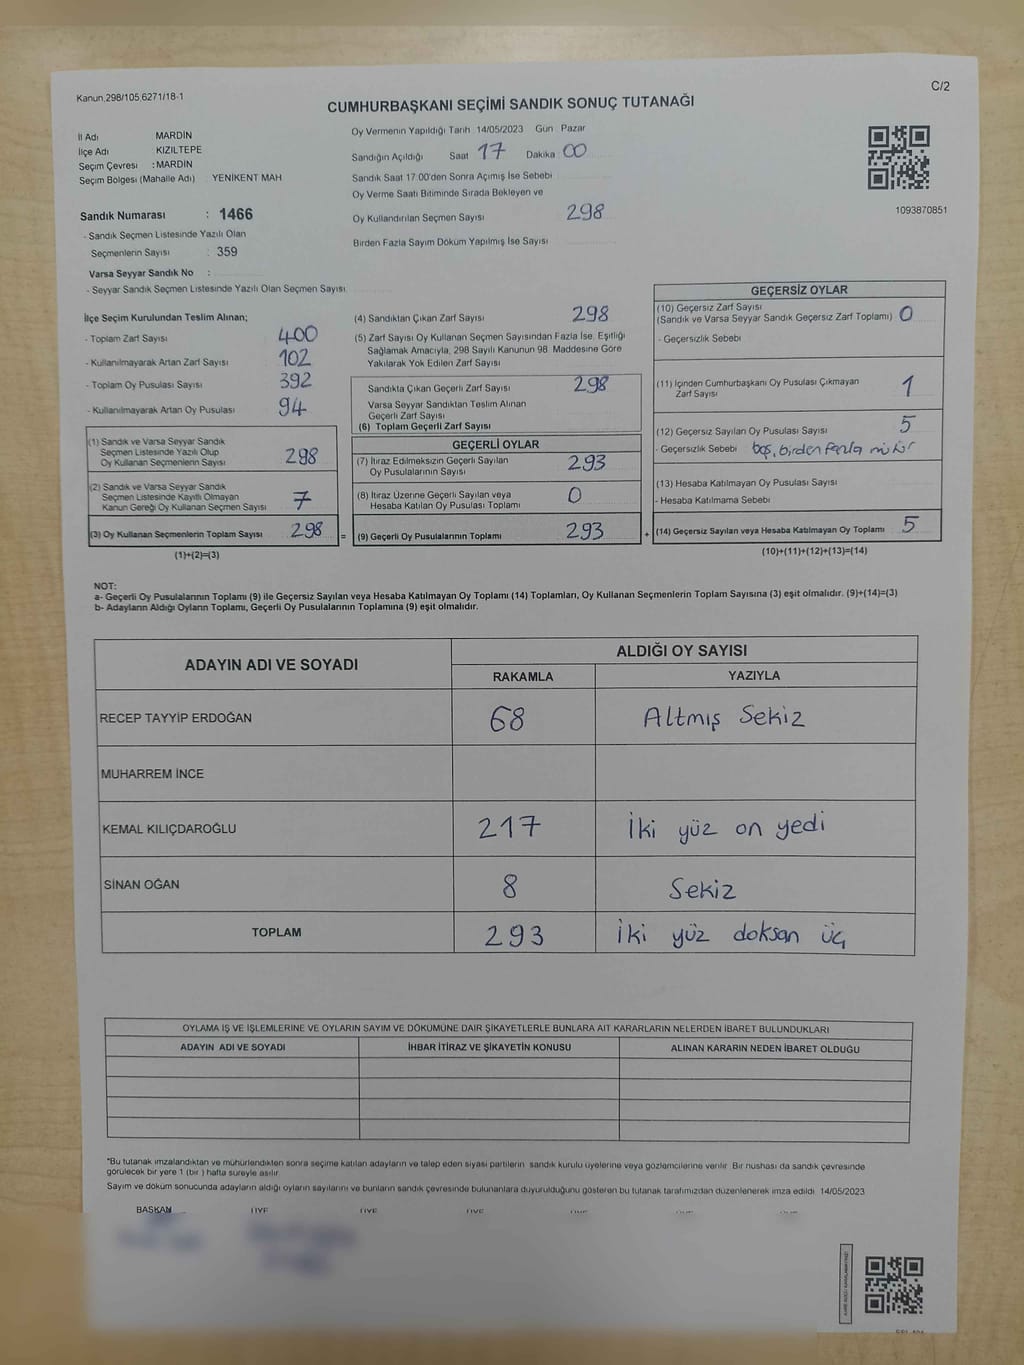 Kanun,298/105,6271/18-1
C/2
CUMHURBAŞKANI SEÇİMİ SANDIK SONUÇ TUTANAĞI
İl Adı MARDİN
İlçe Adı KIZILTEPE
Seçim Çevresi : MARDİN
Seçim Bölgesi (Mahalle Adı) YENİKENT MAH
Sandık Numarası : 1466
- Sandık Seçmen Listesinde Yazılı Olan
Seçmenlerin Sayısı : 359
Varsa Seyyar Sandık No :
- Seyyar Sandık Seçmen Listesinde Yazılı Olan Seçmen Sayısı:
Oy Vermenin Yapıldığı Tarih 14/05/2023 Gün Pazar
Sandığın Açıldığı Saat 17 Dakika 00
Sandık Saat 17:00'den Sonra Açımış İse Sebebi
Oy Verme Saati Bitiminde Sırada Bekleyen ve
Oy Kullandırılan Seçmen Sayısı 298
Birden Fazla Sayım Döküm Yapılmış İse Sayısı
1093870851
İlçe Seçim Kurulundan Teslim Alınan;
- Toplam Zarf Sayısı 400
- Kullanılmayarak Artan Zarf Sayısı 102
- Toplam Oy Pusulası Sayısı 392
- Kullanılmayarak Artan Oy Pusulası 94
(1) Sandık ve Varsa Seyyar Sandık
Seçmen Listesinde Yazılı Olup
Oy Kullanan Seçmenlerin Sayısı 298
(2) Sandık ve Varsa Seyyar Sandık
Seçmen Listesinde Kayıtlı Olmayan
Kanun Gereği Oy Kullanan Seçmen Sayısı 7
(3) Oy Kullanan Seçmenlerin Toplam Sayısı 298
(1)+(2)=(3)
(4) Sandıktan Çıkan Zarf Sayısı 298
(5) Zarf Sayısı Oy Kullanan Seçmen Sayısından Fazla İse, Eşitliği
Sağlamak Amacıyla, 298 Sayılı Kanunun 98. Maddesine Göre
Yakılarak Yok Edilen Zarf Sayısı
Sandıkta Çıkan Geçerli Zarf Sayısı 298
Varsa Seyyar Sandıktan Teslim Alınan
Geçerli Zarf Sayısı
(6) Toplam Geçerli Zarf Sayısı
GEÇERLİ OYLAR
(7) İtiraz Edilmeksizin Geçerli Sayılan
Oy Pusulalarının Sayısı 293
(8) İtiraz Üzerine Geçerli Sayılan veya
Hesaba Katılan Oy Pusulası Toplamı 0
= (9) Geçerli Oy Pusulalarının Toplamı 293
GEÇERSİZ OYLAR
(10) Geçersiz Zarf Sayısı
(Sandık ve Varsa Seyyar Sandık Geçersiz Zarf Toplamı) 0
- Geçersizlik Sebebi
(11) İçinden Cumhurbaşkanı Oy Pusulası Çıkmayan
Zarf Sayısı 1
(12) Geçersiz Sayılan Oy Pusulası Sayısı 5
- Geçersizlik Sebebi boş, birden fazla mühür
(13) Hesaba Katılmayan Oy Pusulası Sayısı
- Hesaba Katılmama Sebebi
+ (14) Geçersiz Sayılan veya Hesaba Katılmayan Oy Toplamı 5
(10)+(11)+(12)+(13)=(14)
NOT:
a- Geçerli Oy Pusulalarının Toplamı (9) ile Geçersiz Sayılan veya Hesaba Katılmayan Oy Toplamı (14) Toplamları, Oy Kullanan Seçmenlerin Toplam Sayısına (3) eşit olmalıdır. (9)+(14)=(3)
b- Adayların Aldığı Oyların Toplamı, Geçerli Oy Pusulalarının Toplamına (9) eşit olmalıdır.
ADAYIN ADI VE SOYADI ALDIĞI OY SAYISI
RAKAMLA YAZIYLA
RECEP TAYYİP ERDOĞAN 68 Altmış Sekiz
MUHARREM İNCE
KEMAL KILIÇDAROĞLU 217 İki yüz on yedi
SİNAN OĞAN 8 Sekiz
TOPLAM 293 İki yüz doksan üç
OYLAMA İŞ VE İŞLEMLERİNE VE OYLARIN SAYIM VE DÖKÜMÜNE DAİR ŞİKAYETLERLE BUNLARA AİT KARARLARIN NELERDEN İBARET BULUNDUKLARI
ADAYIN ADI VE SOYADI İHBAR İTİRAZ VE ŞİKAYETİN KONUSU ALINAN KARARIN NEDEN İBARET OLDUĞU
*Bu tutanak imzalandıktan ve mühürlendikten sonra seçime katılan adayların ve talep eden siyasi partilerin sandık kurulu üyelerine veya gözlemcilerine verilir. Bir nushası da sandık çevresinde
görülecek bir yere 1 (bir ) hafta süreyle asılır.
Sayım ve döküm sonucunda adayların aldığı oyların sayılarını ve bunların sandık çevresinde bulunanlara duyurulduğunu gösteren bu tutanak tarafımızdan düzenlenerek imza edildi. 14/05/2023
BAŞKAN ÜYE ÜYE ÜYE